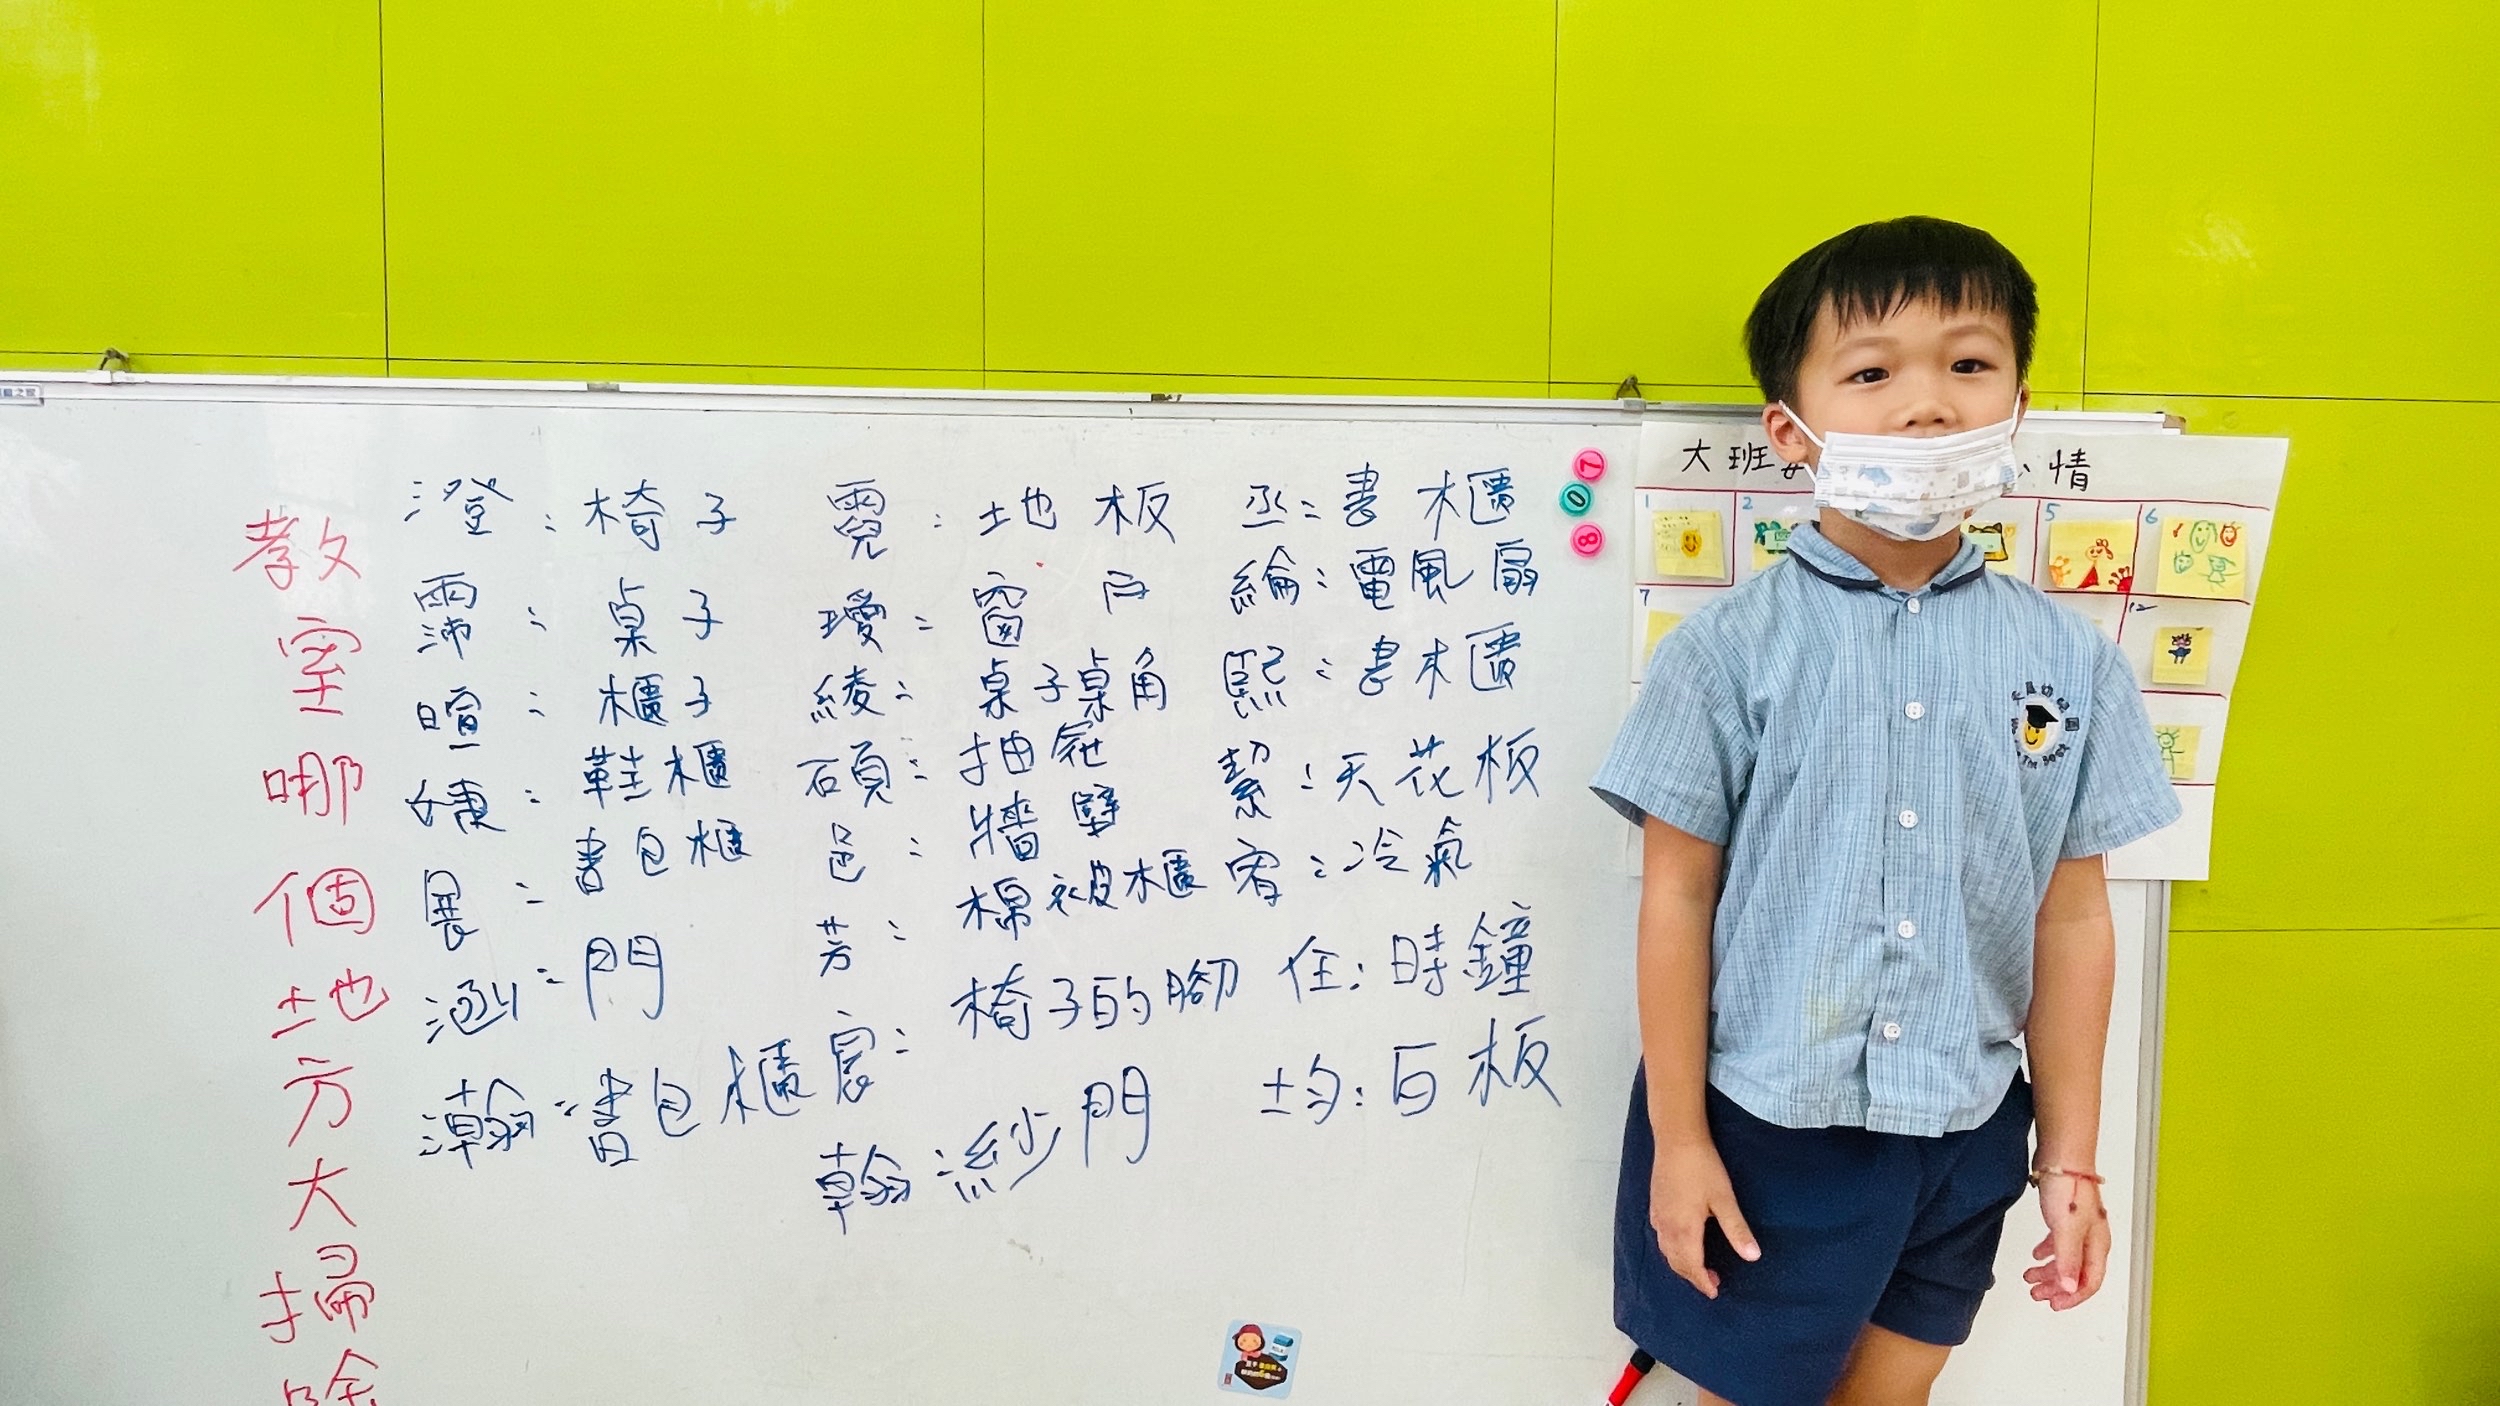 教室哪個地方大掃除
澄：椅子
霈：桌子
暄：櫃子
鞋櫃
晨：書包櫃
涵：門
瀚：書包櫃
霓：地板
璦：窗戶
綾：桌子桌角
碩：抽屜
邑：牆壁
芳：棉被櫃
宸：椅子的腳
翰：紗門
丞：書櫃
綸：電風扇
熙：書櫃
絜：天花板
宥：冷氣
住：時鐘
均：白板
7
0
8
大班
情
1
2
5
6
7
12